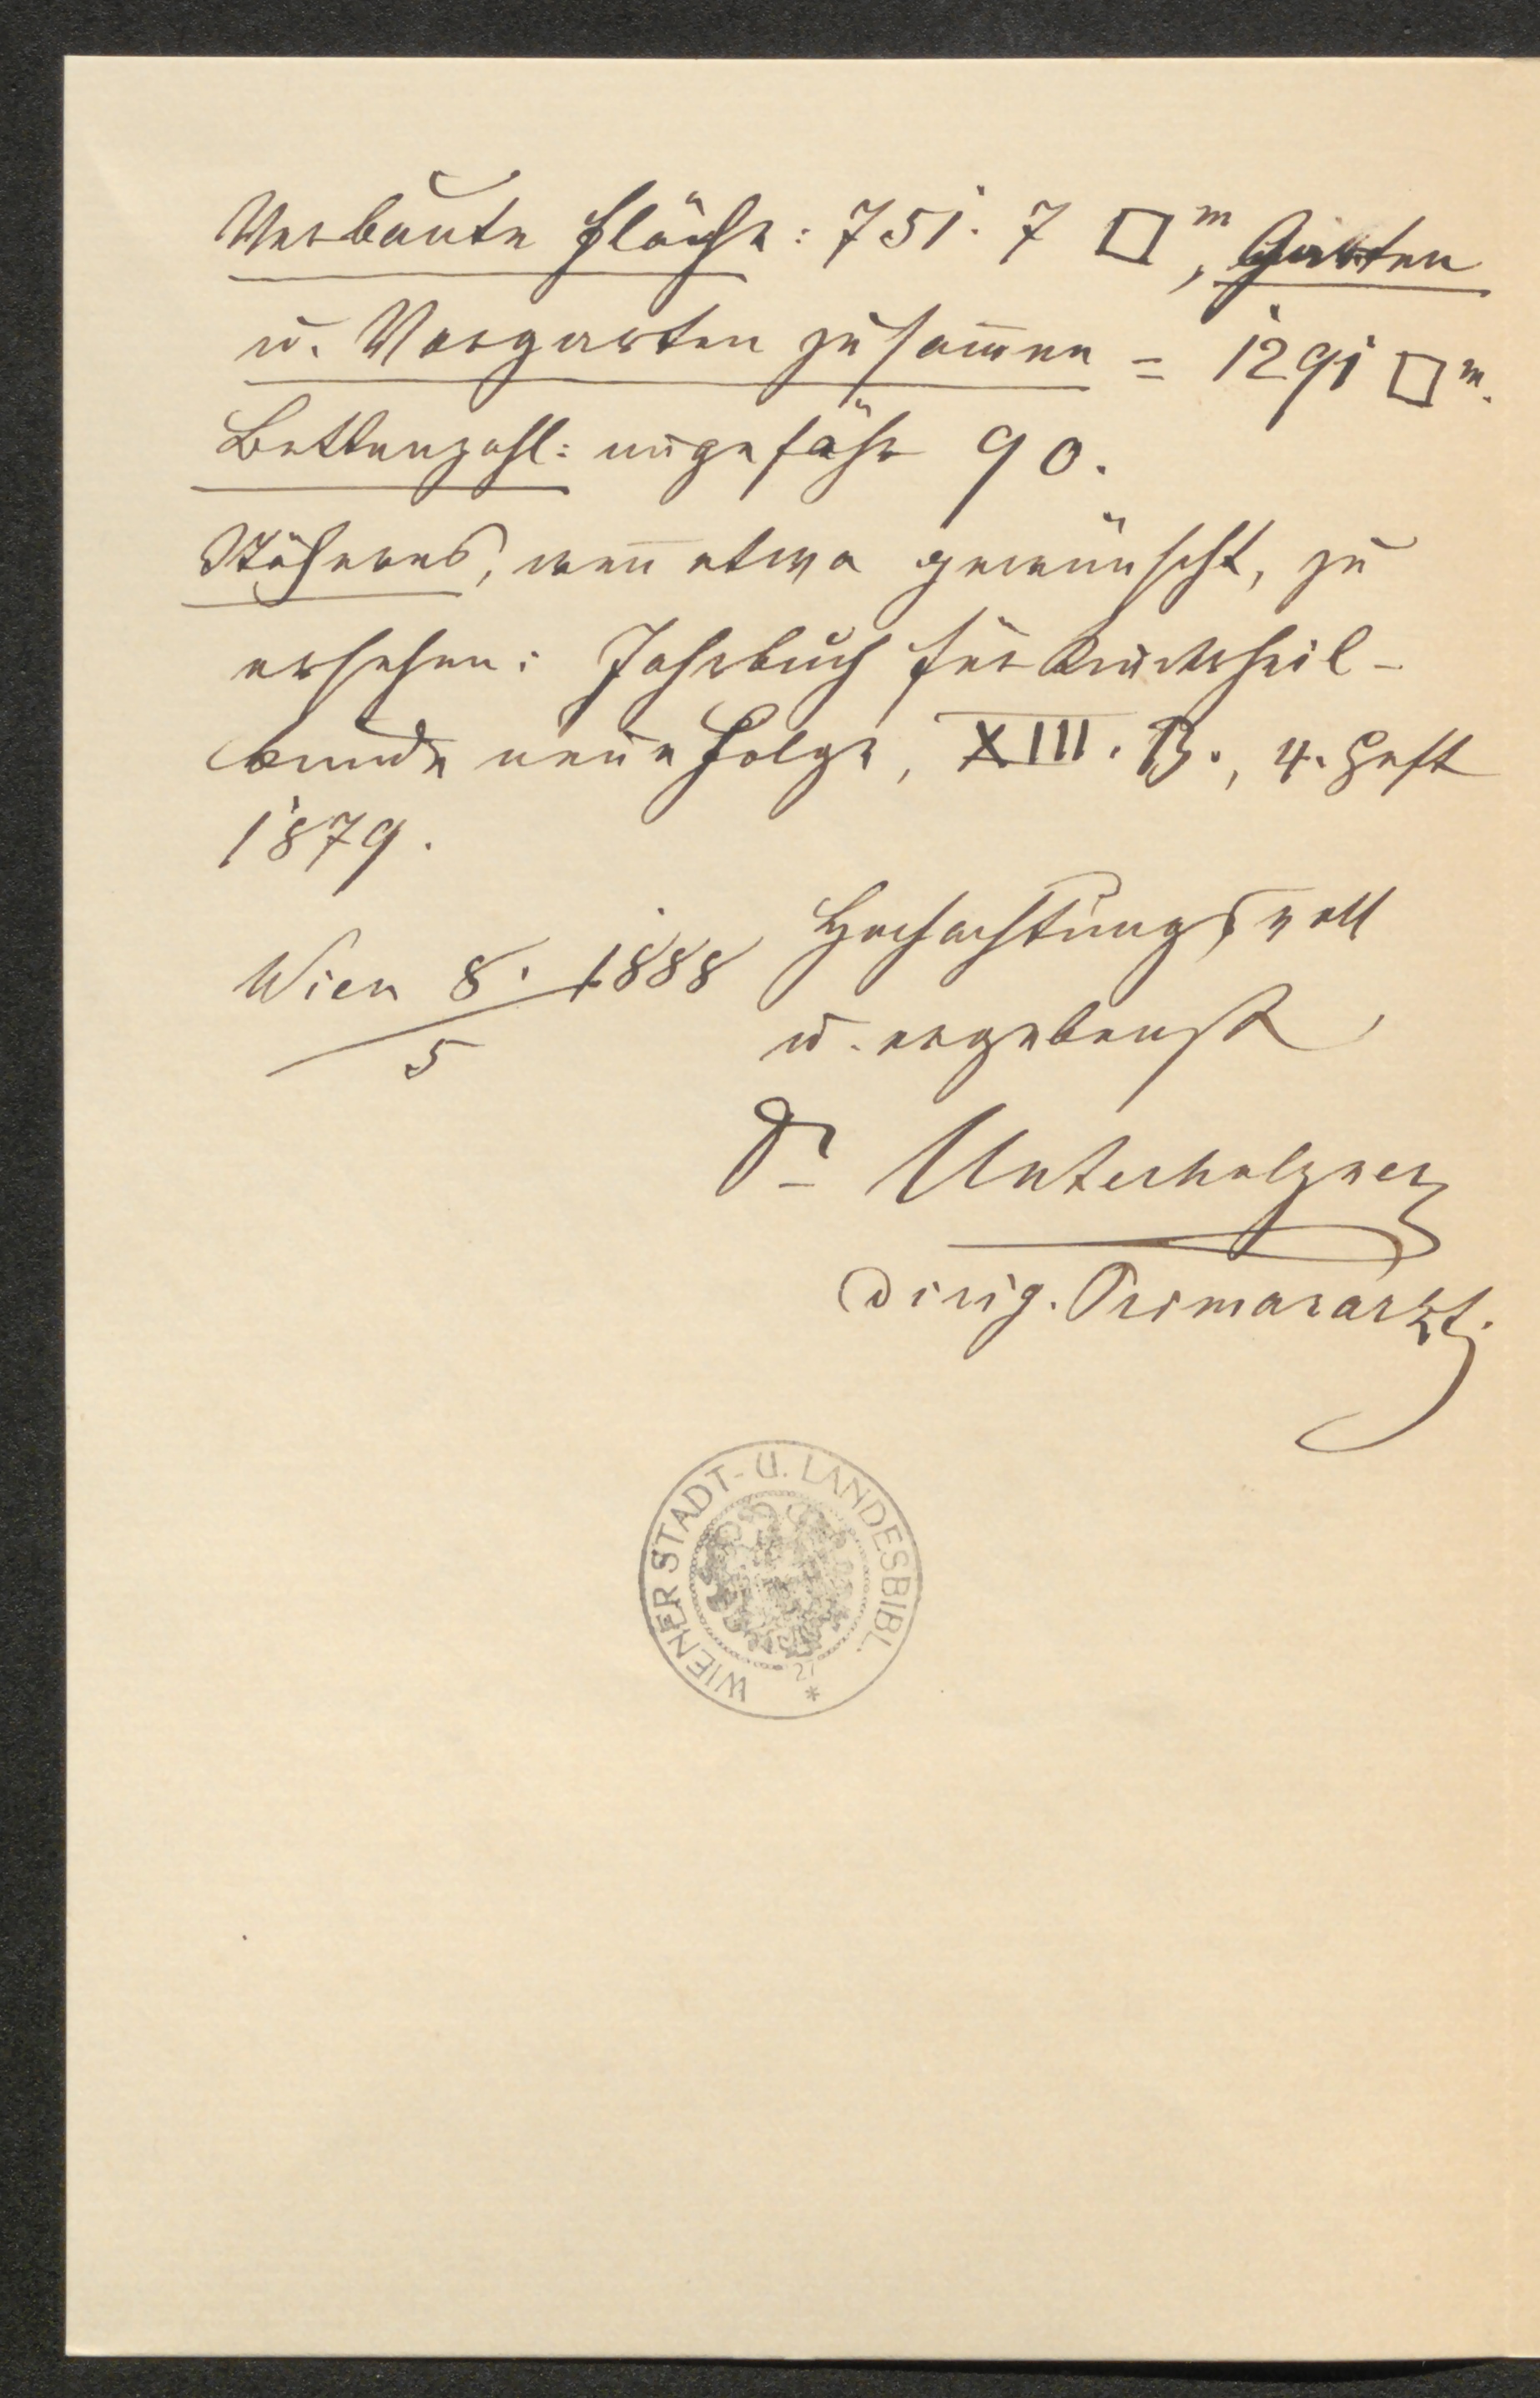 Verbaute Fläche: 751.7 □m, Garten
u. Vorgarten zusam̅en = 1291 □m.
Bettenzahl: ungefähr 90.
Näheres, wen̅ etwa gewünscht, zu
ersehen: Jahrbuch für Kinderheil-
kunde neue Folge, XIII. B., 4. Heft
1879.
Wien 8./5 1888
Hochachtungsvoll
u. ergebenst
Dr Unterholzner
dirig. Primararzt.
WIENER STADT- U. LANDESBIBL.
21
*